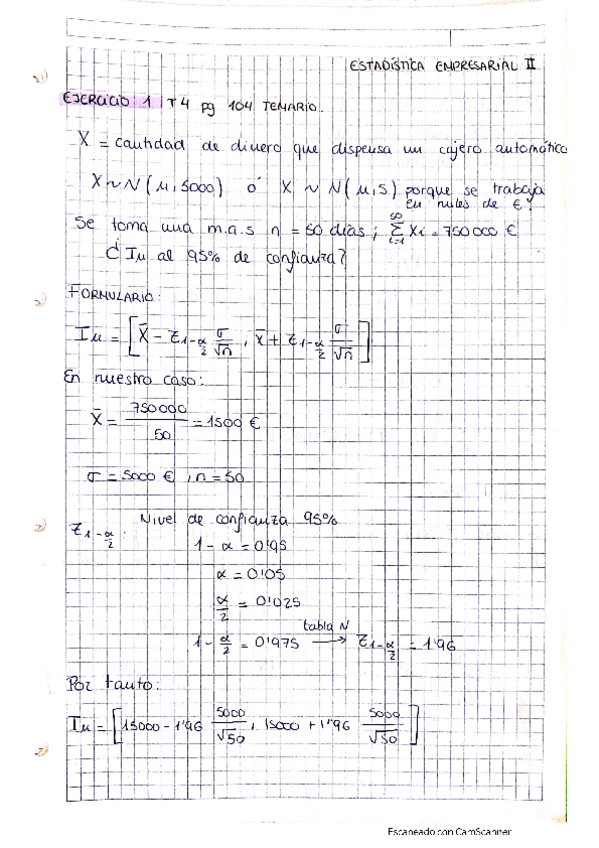 ESTADÍSTICA EMPRESARIAL II
EJERCICIO 1 T4 pg 104 TEMARIO.
X = cantidad de dinero que dispensa un cajero automático
X ~ N(μ, 5000) ó X ~ N(μ, 5) porque se trabaja
en miles de €.
Se toma una m.a.s n = 50 días ; ∑ Xi = 750 000 €
¿ Iμ al 95% de confianza?
FORMULARIO:
Iμ = [ X̄ - Z1-α/2 σ/√n , X̄ + Z1-α/2 σ/√n ]
En nuestro caso:
X̄ = 750000/50 = 1500 €
σ = 5000 € , n = 50
Z1-α/2 : Nivel de confianza 95%
1 - α = 0'95
α = 0'05
α/2 = 0'025
1 - α/2 = 0'975 tabla N → Z1-α/2 = 1'96
Por tanto:
Iμ = [ 15000 - 1'96 5000/√50 , 15000 + 1'96 5000/√50 ]
Escaneado con CamScanner